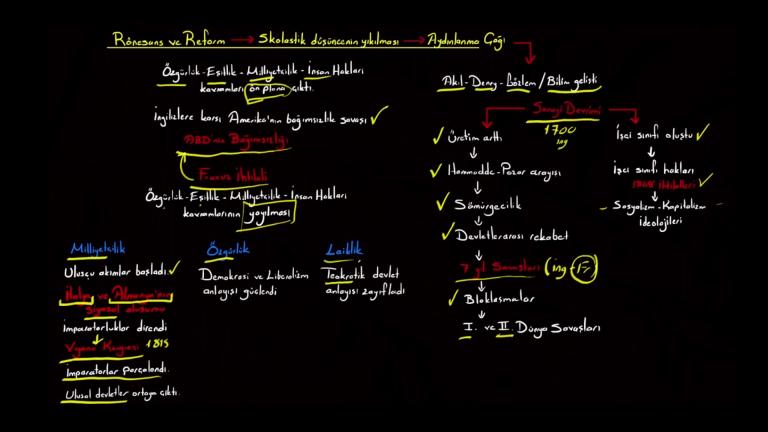 Rönesans ve Reform → Skolastik düşüncenin yıkılması → Aydınlanma Çağı
Özgürlük - Eşitlik - Milliyetçilik - İnsan Hakları
kavramları ön plana çıktı.
İngilizlere karşı Amerika'nın bağımsızlık savaşı ✓
ABD'nin Bağımsızlığı
Fransız İhtilali
Özgürlük - Eşitlik - Milliyetçilik - İnsan Hakları
kavramlarının yayılması
Milliyetçilik
Ulusçu akımlar başladı. ✓
İtalya ve Almanya'nın
siyasal oluşumu
İmparatorluklar direndi
Viyana Kongresi 1815
İmparatorlar parçalandı.
Ulusal devletler ortaya çıktı.
Özgürlük
Demokrasi ve Liberalizm
anlayışı güçlendi
Laiklik
Teokratik devlet
anlayışı zayıfladı
Akıl - Deney - Gözlem / Bilim gelişti
Sanayi Devrimi
1700
ing
✓ Üretim arttı
✓ Hammadde - Pazar arayışı
✓ Sömürgecilik
✓ Devletlerarası rekabet
7 yıl Savaşları (ing -
✓ Bloklaşmalar
I. ve II. Dünya Savaşları
İşçi sınıfı oluştu ✓
İşçi sınıfı hakları
1848 ihtilalleri ✓
Sosyalizm - Kapitalizm
ideolojileri